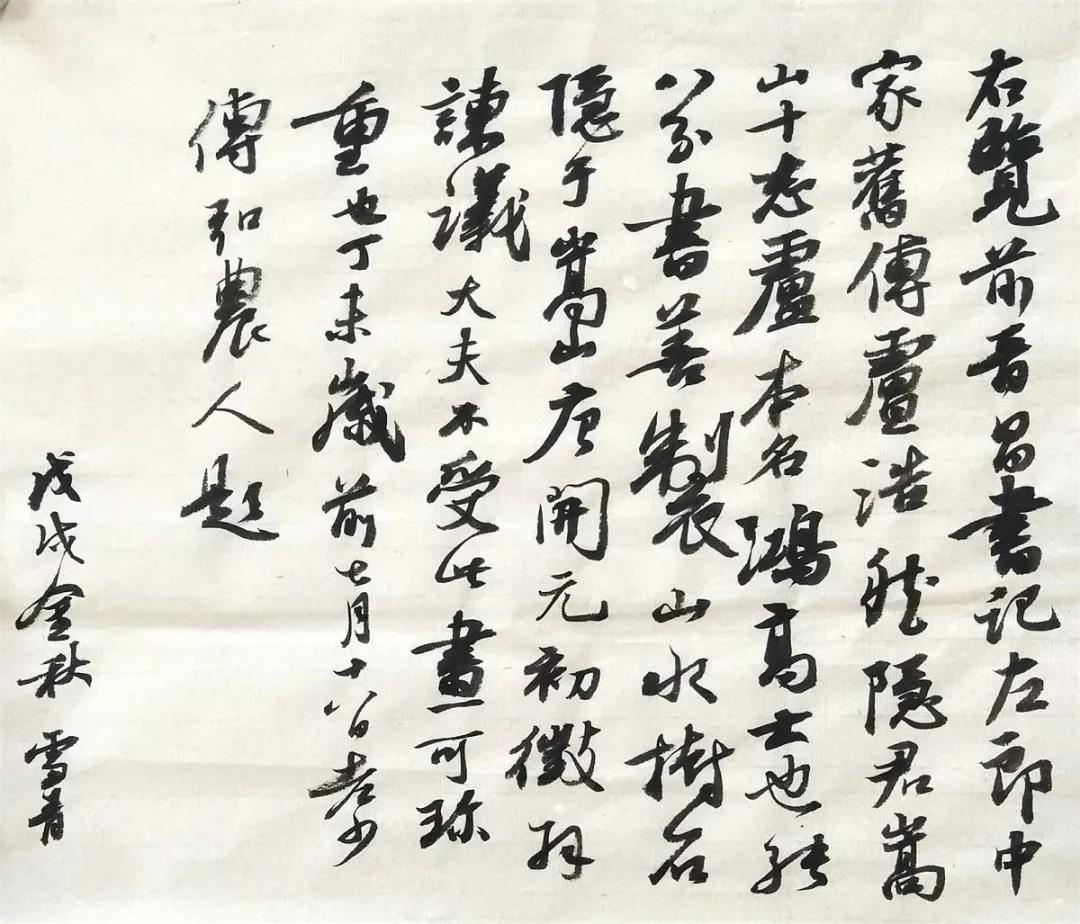 右覽前晉昌書記左郎中
家舊傳盧浩然隱君嵩
山十志盧本名鴻高士也能
八分書善製山水樹石
隱于嵩山唐開元初徵拜
諫議大夫不受此畫可珎
重也丁未歲前七月十八日老少
傅弘農人題
戊戌金秋 雪